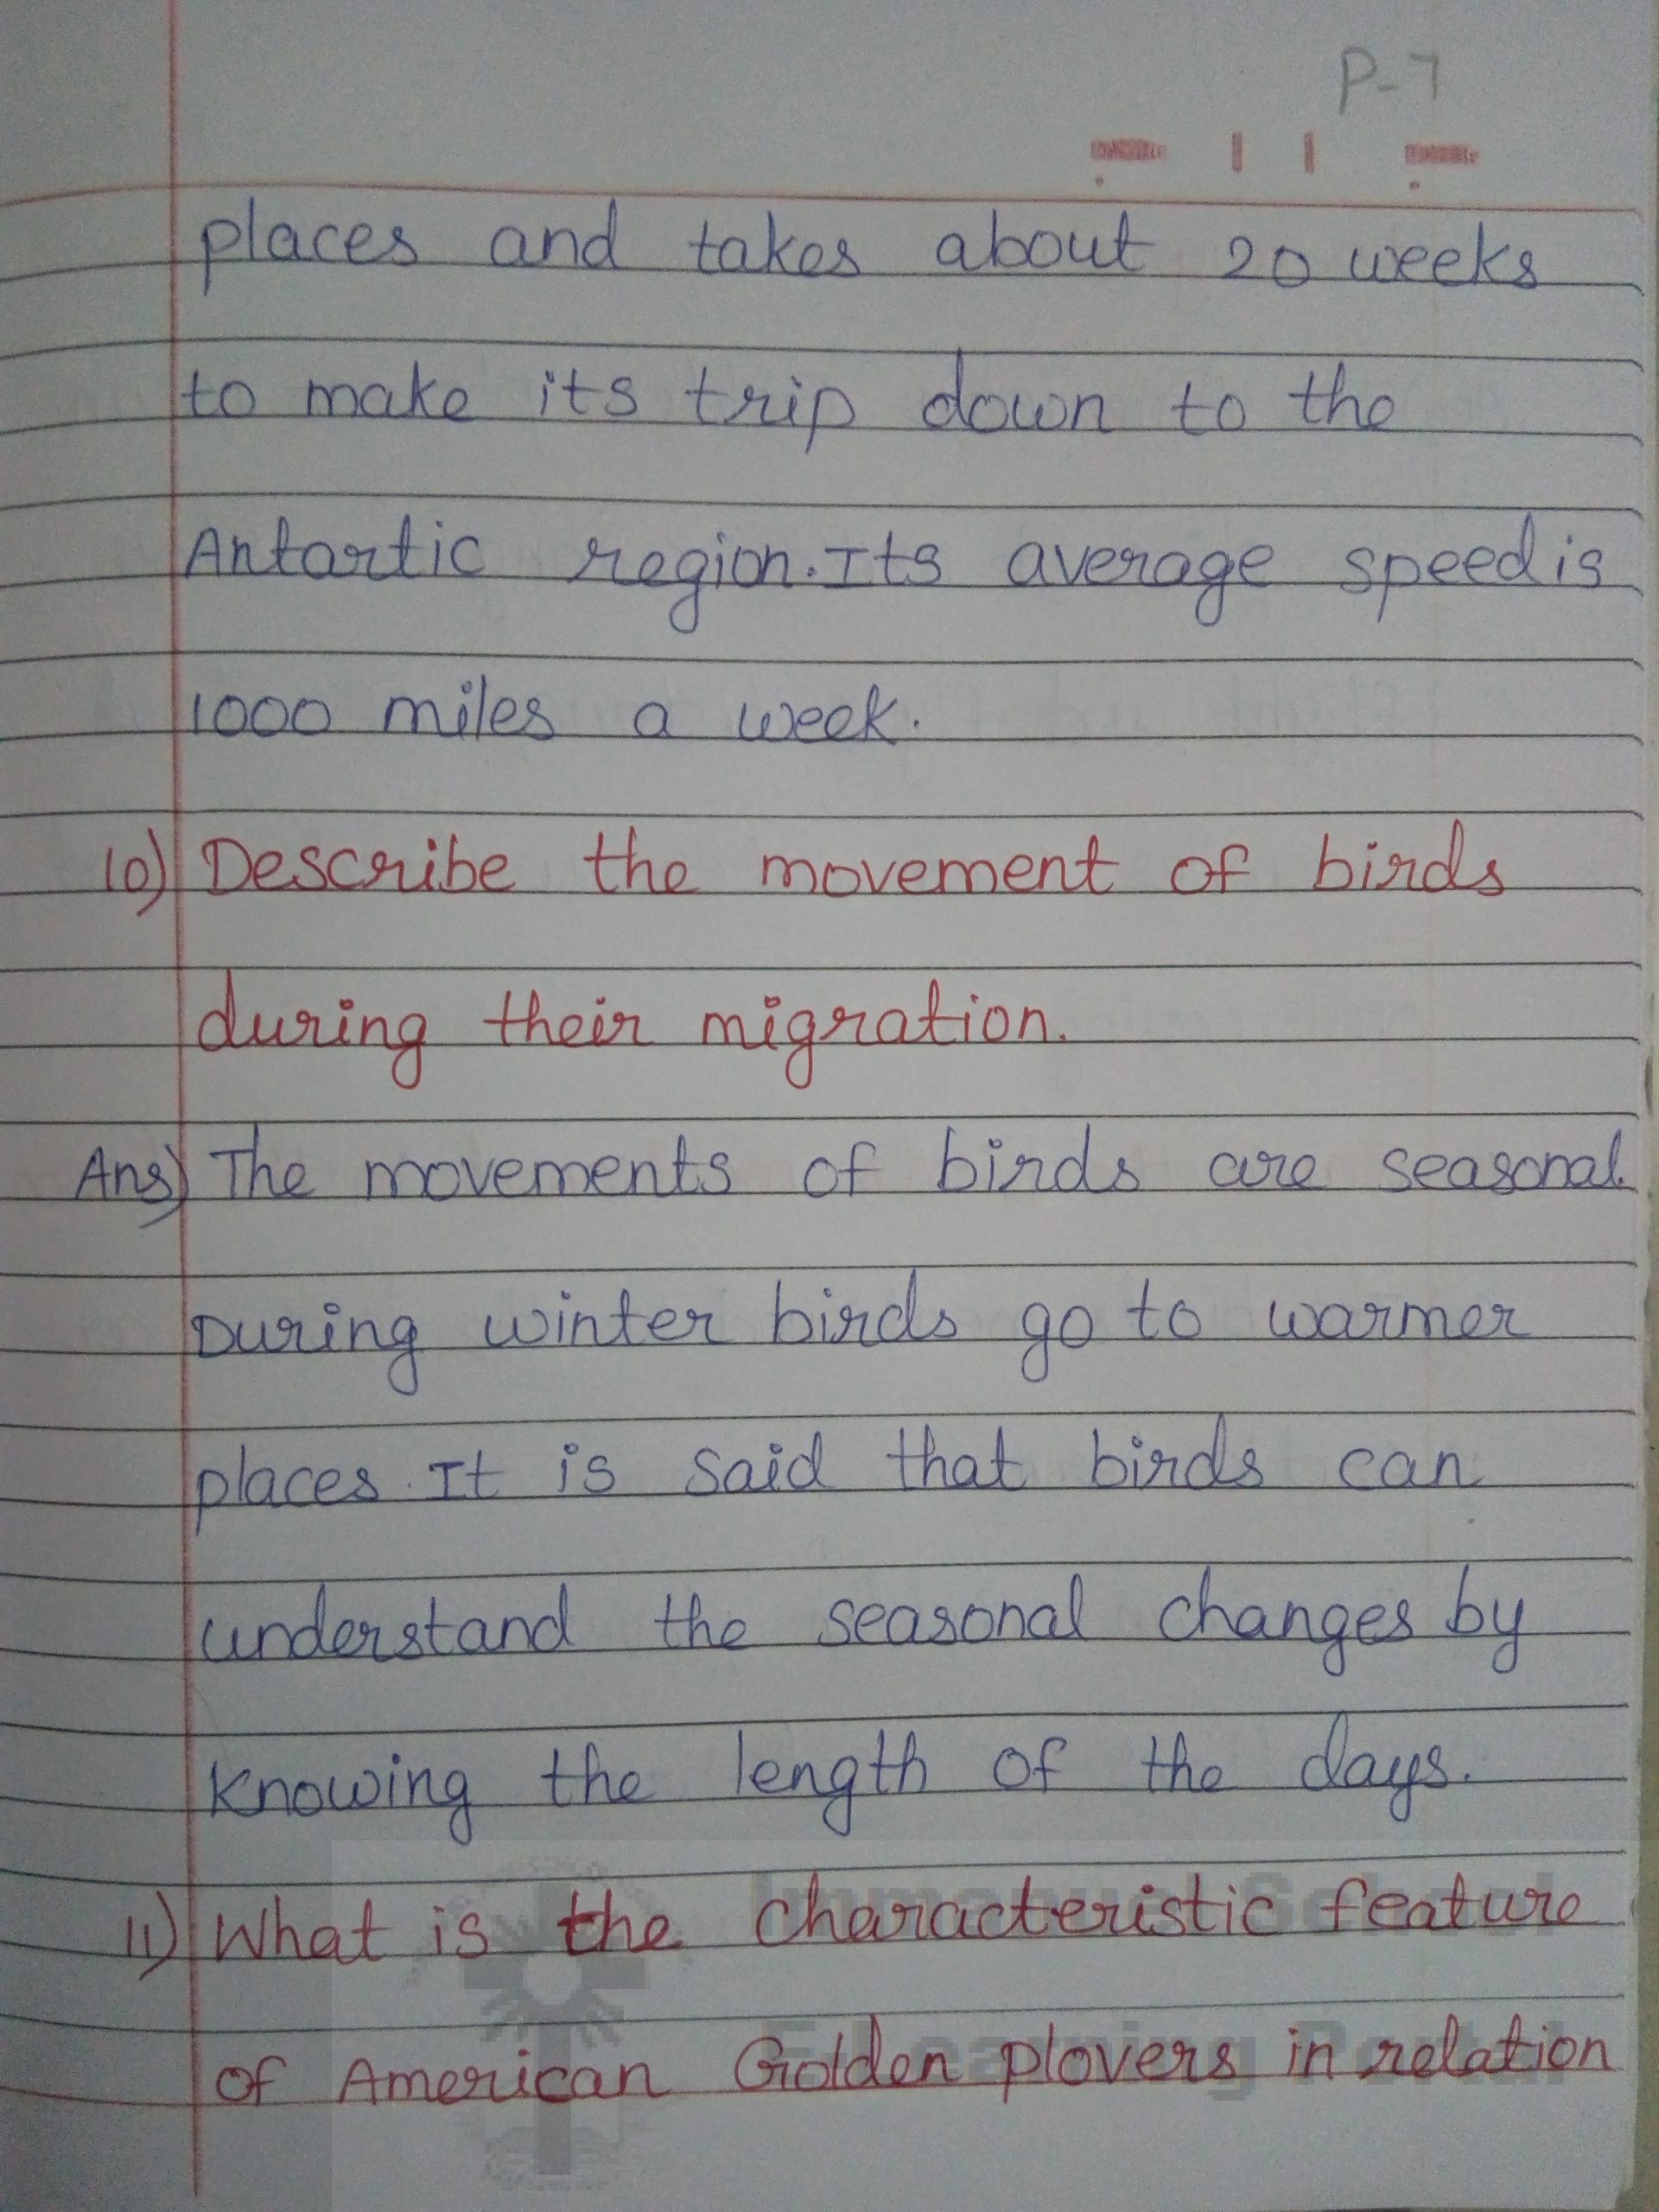 P-7
places and takes about 20 weeks
to make its trip down to the
Antartic region. Its average speed is
1000 miles a week.
10) Describe the movement of birds
during their migration.
Ans) The movements of birds are seasonal.
During winter birds go to warmer
places. It is said that birds can
understand the seasonal changes by
knowing the length of the days.
11) What is the characteristic feature
of American Golden plovers in relation